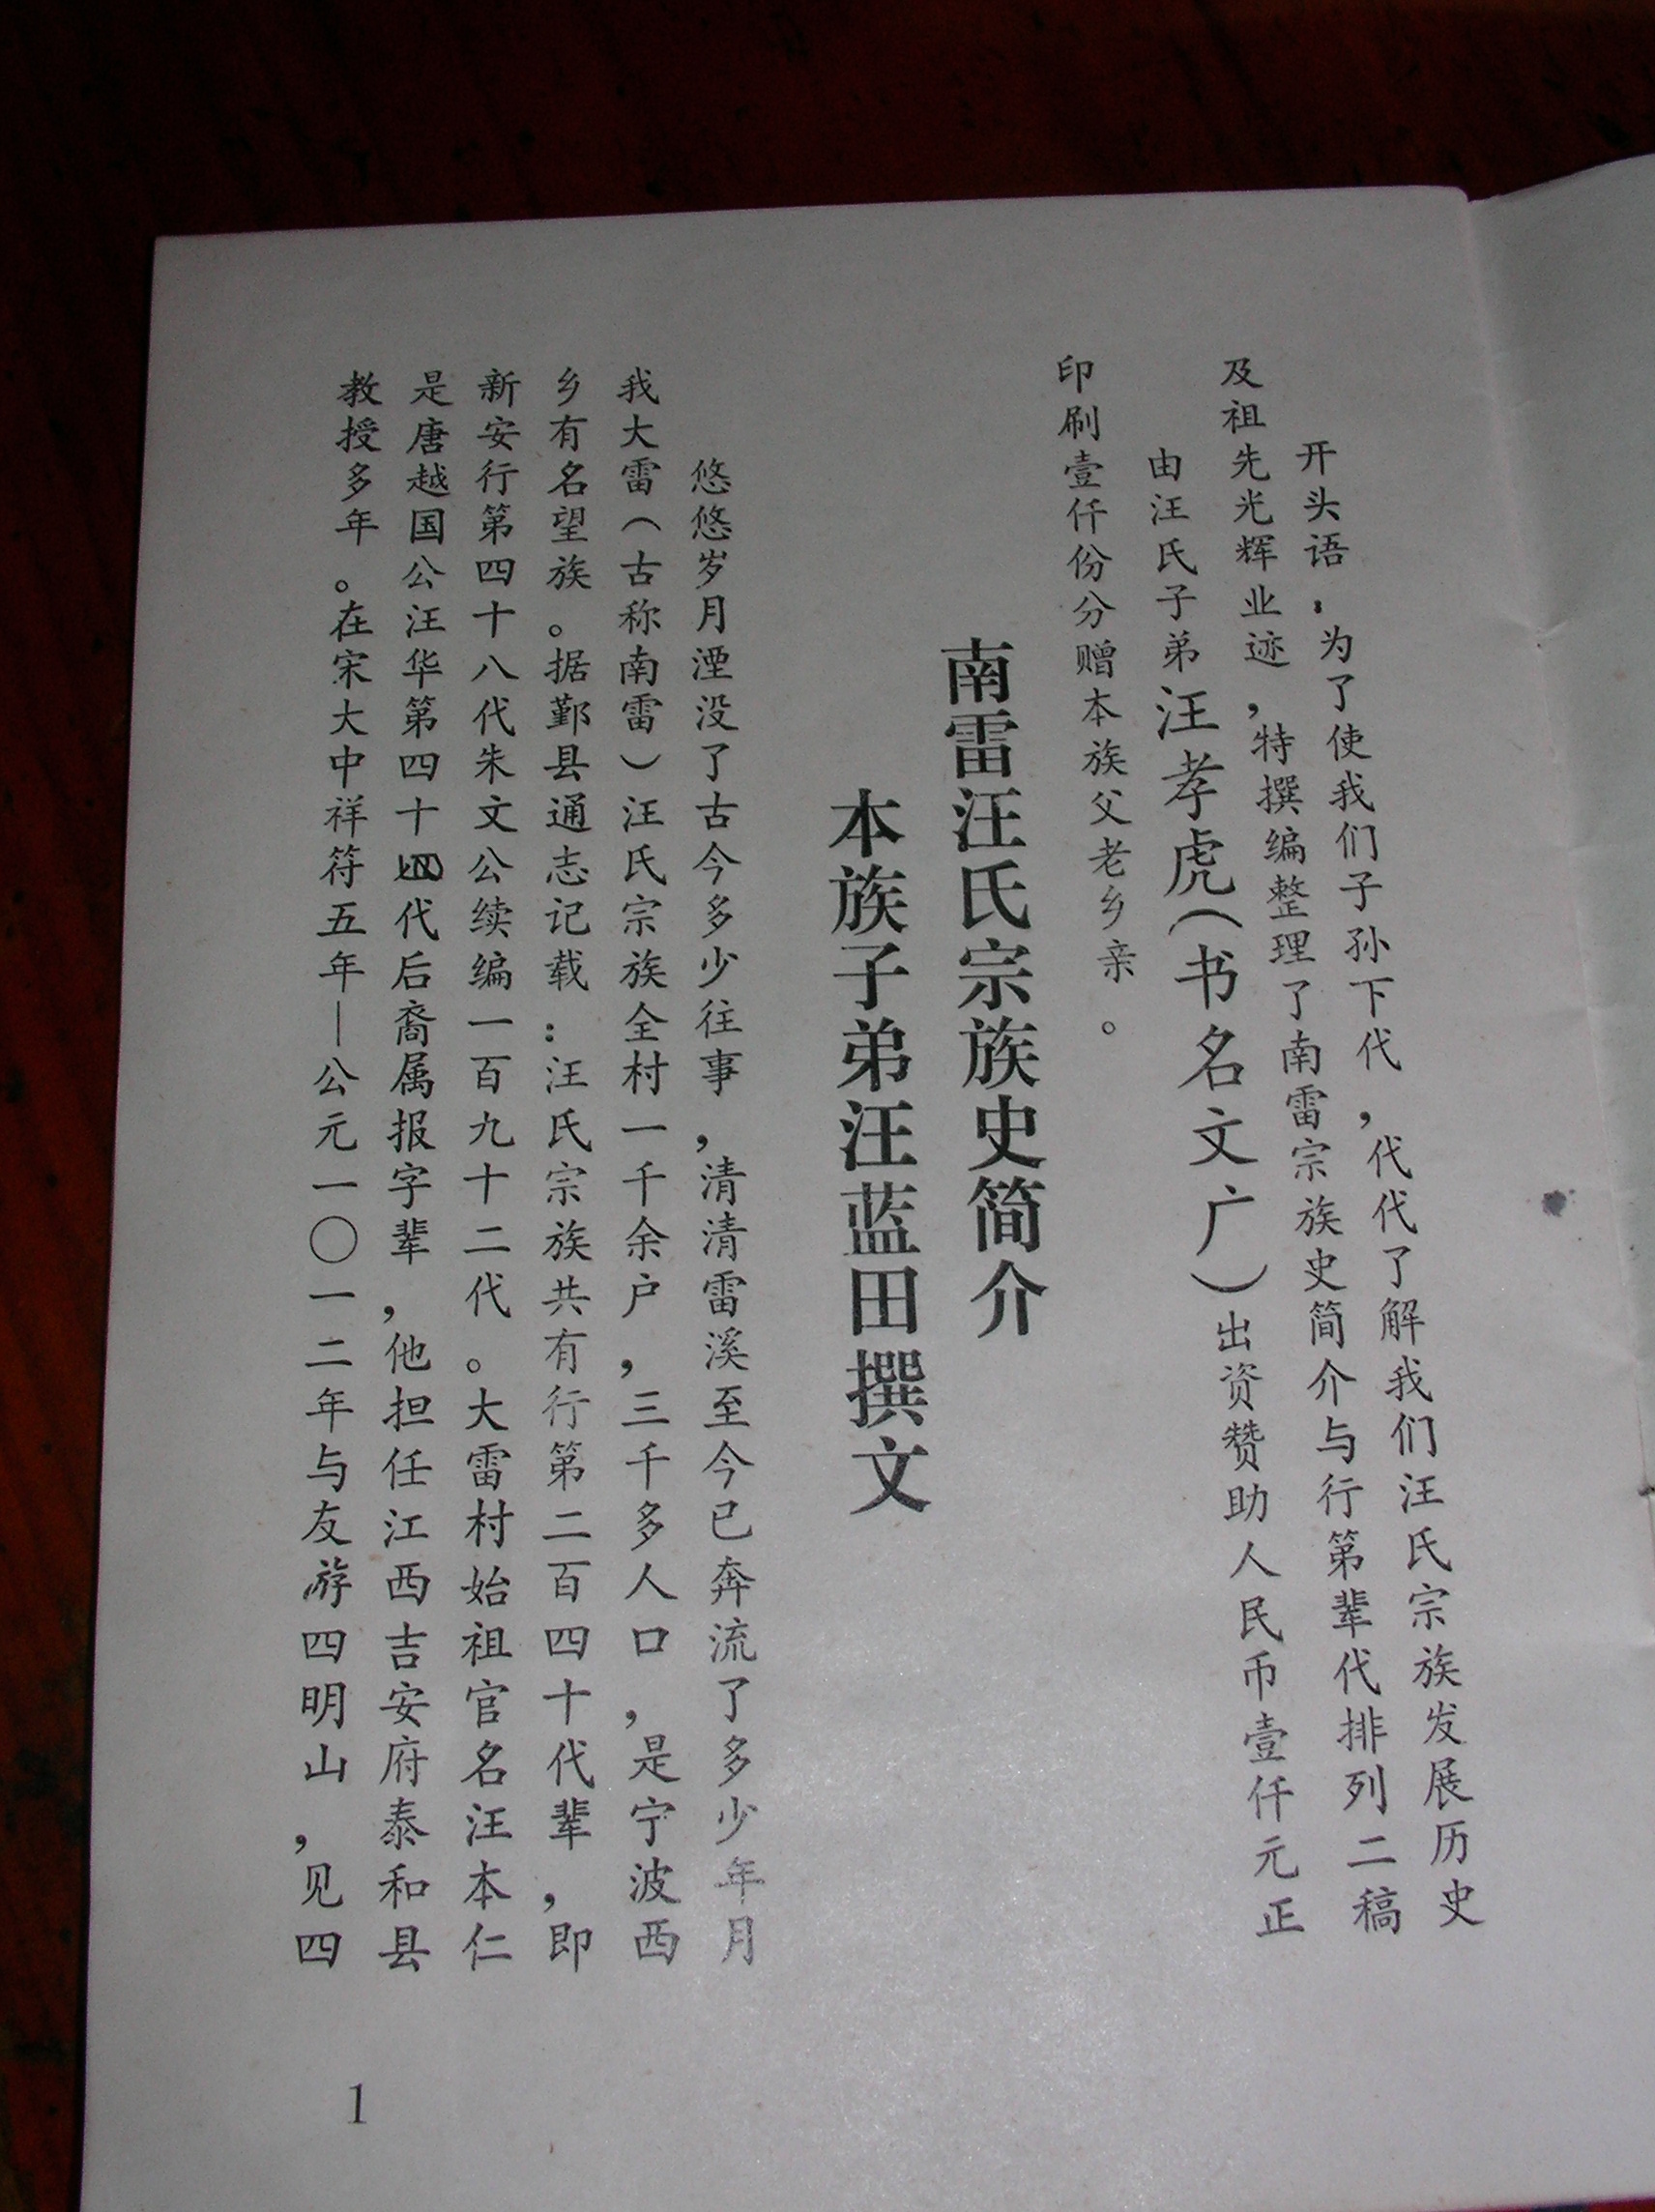 开头语，为了使我们子孙下代，代代了解我们汪氏宗族发展历史
及祖先光辉业迹，特撰编整理了南雷宗族史简介与行第辈代排列二稿
由汪氏子弟汪孝虎（书名文广）出资赞助人民币壹仟元正
印刷壹仟份分赠本族父老乡亲。
南雷汪氏宗族史简介
本族子弟汪蓝田撰文
悠悠岁月湮没了古今多少往事，清清雷溪至今已奔流了多少年月
我大雷（古称南雷）汪氏宗族全村一千余户，三千多人口，是宁波西
乡有名望族。据鄞县通志记载：汪氏宗族共有行第二百四十代辈，即
新安行第四十八代朱文公续编一百九十二代。大雷村始祖官名汪本仁
是唐越国公汪华第四十四代后裔属报字辈，他担任江西吉安府泰和县
教授多年。在宋大中祥符五年—公元一〇一二年与友游四明山，见四
1